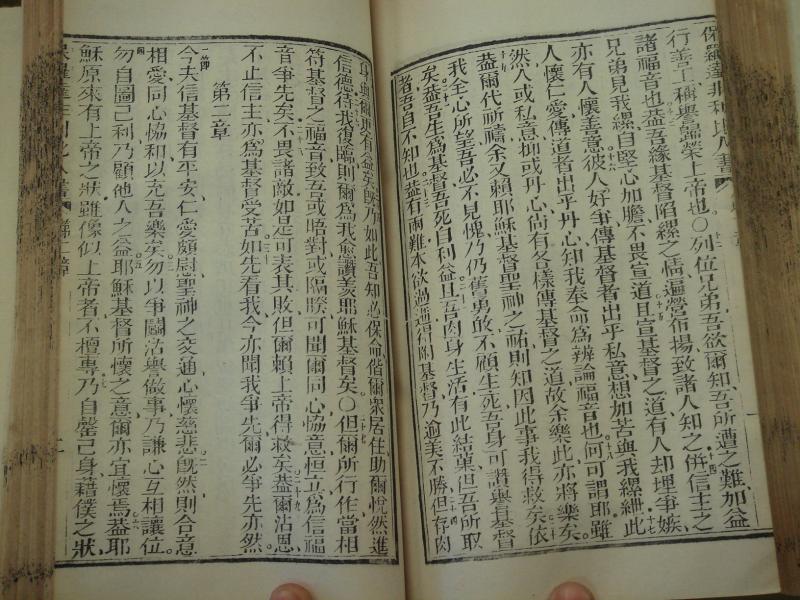 保羅達非利比人書
行善工稱譽歸榮上帝也〇列位兄弟吾欲爾知吾所遭之難加益
諸福音也蓋吾緣基督陷縲之情遍營布揚致諸人知之併信主之
兄弟見我縲自堅心加膽不畏宣道且宣基督之道有人却埋爭嫉
亦有人懷善意彼人好爭傳基督者出乎私意想加苦與我縲紲此
人懷仁愛傳道者出乎丹心知我奉命為辨論福音也何可謂耶雖
然人或私意抑或丹心尚有各樣傳基督之道故余樂此亦將樂矣
蓋爾代祈禱余又賴耶穌基督聖神之祐則知因此事我得救矣依
我全心所望吾必不見愧乃仍舊勇敢不顧生死吾身可讚譽基督
矣蓋吾生為基督吾死自利益且吾肉身生活有此結菓但吾所取
者吾自不知也蓋有兩難本欲過逝得附基督乃逾美不勝但存肉
身與爾輿有益矣既乃如此吾知必保命偕爾衆居住助爾悅然進
信德待我復臨則爾為我愈讚美耶穌基督矣〇但爾所行作當相
符基督之福音致吾或晤對或隔暌可聞爾同心恊意恒立為信福
音爭先矣不畏諸敵如是可表其敗但爾賴上帝得救矣蓋爾沾恩
不止信主亦為基督受苦如先看我今亦聞我爭先爾必爭先亦然
第二章
一節今夫信基督有平安仁愛頗慰聖神之交通心懷慈悲既然則合意
相愛同心恊和以充吾樂矣勿以爭鬭沽譽做事乃謙心互相讓位
勿自圖己利乃顧他人之益耶穌基督所懷之意爾亦宜懷焉蓋耶
穌原來有上帝之狀雖像似上帝者不擅專乃自罄己身藉僕之狀
第二章